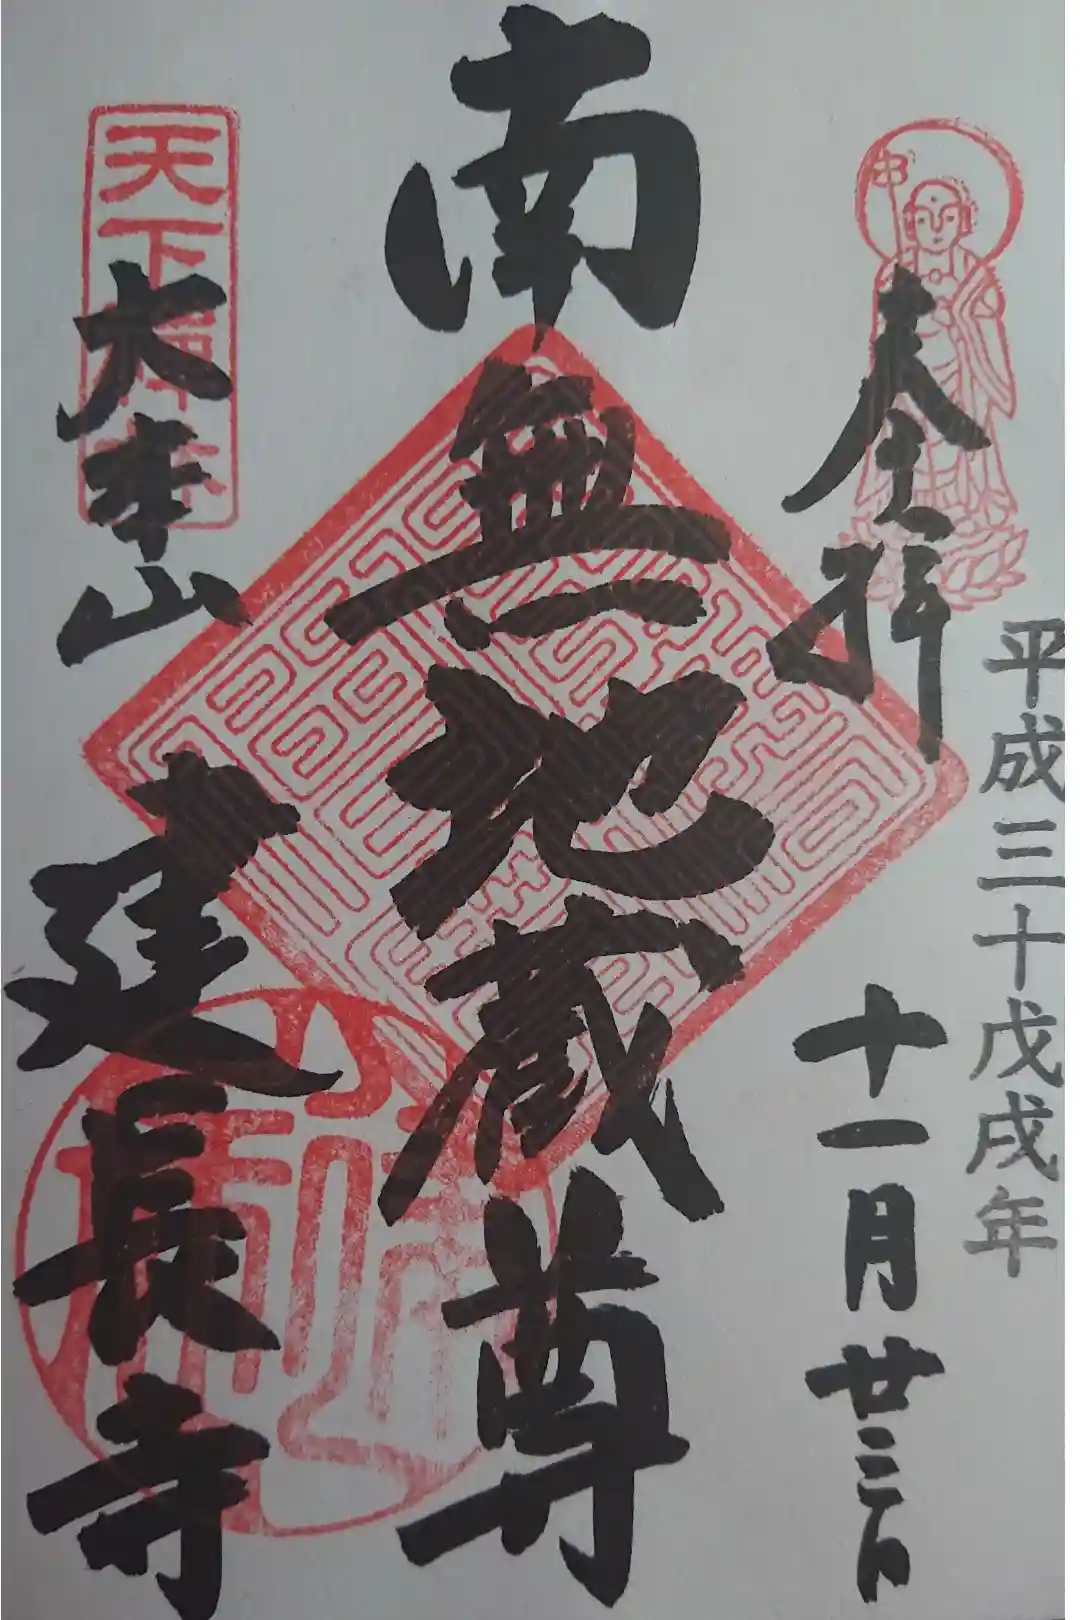 平成三十戊戌年
奉拝
十一月廿三日
南無地蔵尊
天下禅林
大本山
建長寺